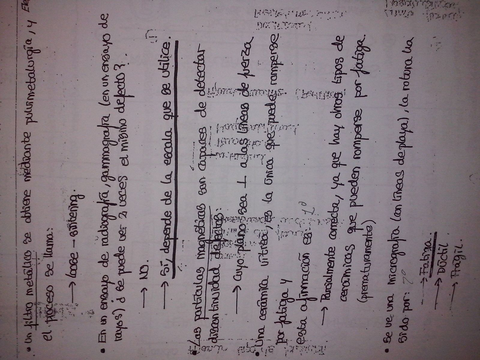 • Un filtro metálico se obtiene mediante pulvimetalurgia, y
el proceso se llama:
→ loose-sintering.
• En un ensayo de radiografía, gammagrafía (en un ensayo de
rayos) ¿ se puede ver 2 veces el mismo defecto?.
→ NO.
→ Sí, depende de la escala que se utilice.
• Las partículas magnéticas son capaces de detectar
discontinuidad defectos:
→ Cuyo plano sea ⊥ a las líneas de fuerza
• Una cerámica vítrea, es la única que puedes romperse
por fatiga y
esta afirmación es:
→ Parcialmente correcta, ya que hay otros tipos de
cerámicas que pueden romperse por fatiga.
(prematuramente)
• Se ve una micrografía (con líneas de playa), la rotura ha
sido por:
→ Fatiga.
→ Dúctil
→ Frágil